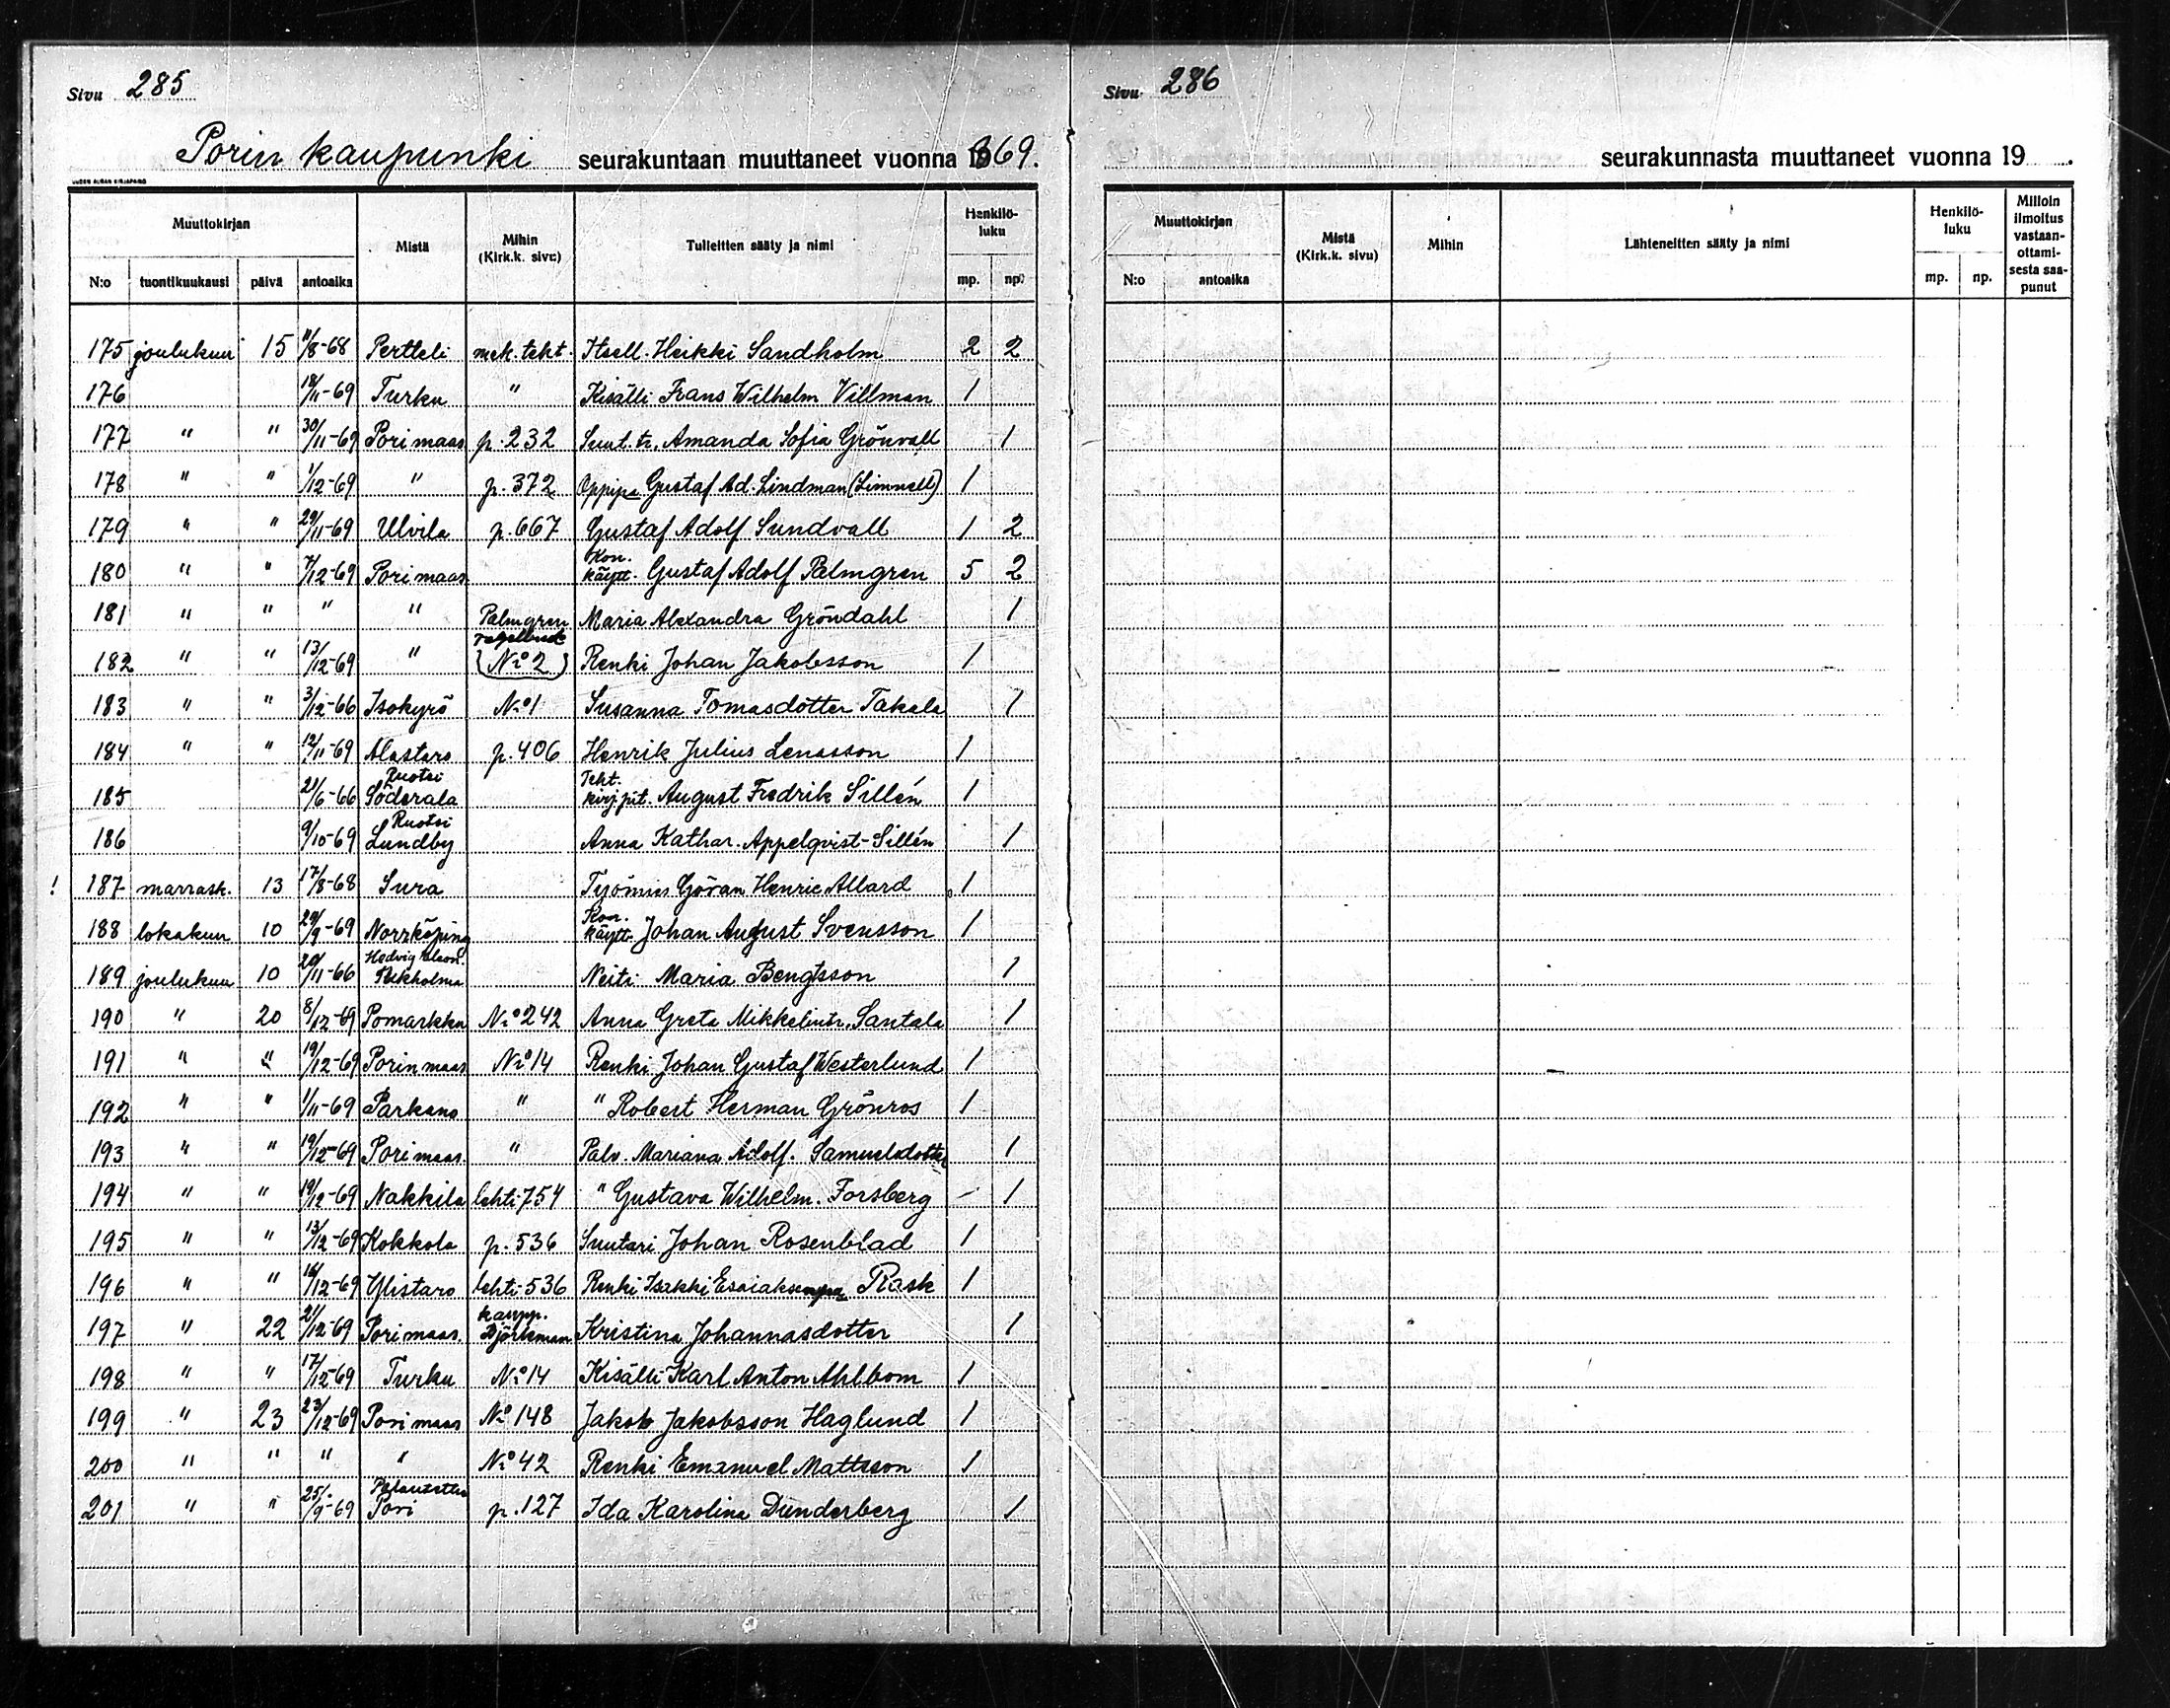 Sivu 285
Porin kaupunki seurakuntaan muuttaneet vuonna 1869.
Muuttokirjan Mistä Mihin (Kirk.k. sivu) Tulleitten sääty ja nimi Henkilöluku
N:o tuontikuukausi päivä antoaika mp. np.
175 joulukuu 15 11/8-68 Pertteli mek. teht. Itsell. Heikki Sandholm 2 2
176 18/11-69 Turku " Kisälli Frans Wilhelm Villman 1
177 " " 30/11-69 Pori maas. p. 232 Suut. tr. Amanda Sofia Grönvall 1
178 " " 1/12-69 " p. 372 Oppipa Gustaf Ad. Lindman (Limnell) 1
179 " " 29/11-69 Ulvila p. 667 Gustaf Adolf Sundvall 1 2
180 " " 7/12-69 Pori maas. Kon. käytt. Gustaf Adolf Palmgren 5 2
181 " " " " Palmgren Maria Alexandra Gröndahl 1
182 " " 13/12-69 " (N:o 2) Renki Johan Jakobsson 1
183 " " 3/12-66 Isokyrö N:o 1 Susanna Tomasdotter Takala 1
184 " " 12/11-69 Alastaro p. 406 Henrik Julius Lenasson 1
185 21/6-66 Ruotsi Söderala Teht. kirj.pit. August Fredrik Sillén 1
186 9/10-69 Ruotsi Lundby Anna Kathar. Appelqvist-Sillén 1
! 187 marrask. 13 17/8-68 Sura Työmies Göran Henric Allard 1
188 lokakuu 10 29/9-69 Norrköping Kon. käytt. Johan August Svensson 1
189 joulukuu 10 20/11-66 Hedvig Eleon. Tukholma Neiti Maria Bengtsson 1
190 " 20 8/12-69 Pomarkku N:o 242 Anna Greta Mikkelintr. Santala 1
191 " " 19/12-69 Porin maas. N:o 14 Renki Johan Gustaf Westerlund 1
192 " " 1/11-69 Parkano " " Robert Herman Grönros 1
193 " " 19/12-69 Pori maas. " Palv. Mariana Adolf. Samuelsdotter 1
194 " " 19/12-69 Nakkila lehti 754 " Gustava Wilhelm. Forsberg - 1
195 " " 13/12-69 Kokkola p. 536 Suutari Johan Rosenblad 1
196 " " 16/12-69 Ylistaro lehti 536 Renki Isakki Esaiaksenpa Rask 1
197 " 22 21/12-69 Pori maas. kaupp. Björkman Kristina Johannasdotter 1
198 " " 17/12-69 Turku N:o 14 Kisälli Karl Anton Ahlbom 1
199 " 23 23/12-69 Pori maas N:o 148 Jakob Jakobsson Haglund 1
200 " " " " N:o 42 Renki Emanuel Mattsson 1
201 " " 25/9-69 Palautettu Pori p. 127 Ida Karolina Dunderberg 1
Sivu 286
seurakunnasta muuttaneet vuonna 19 .
Muuttokirjan Mistä (Kirk.k. sivu) Mihin Lähteneitten sääty ja nimi Henkilöluku Milloin ilmoitus vastaanottamisesta saapunut
N:o antoaika mp. np.